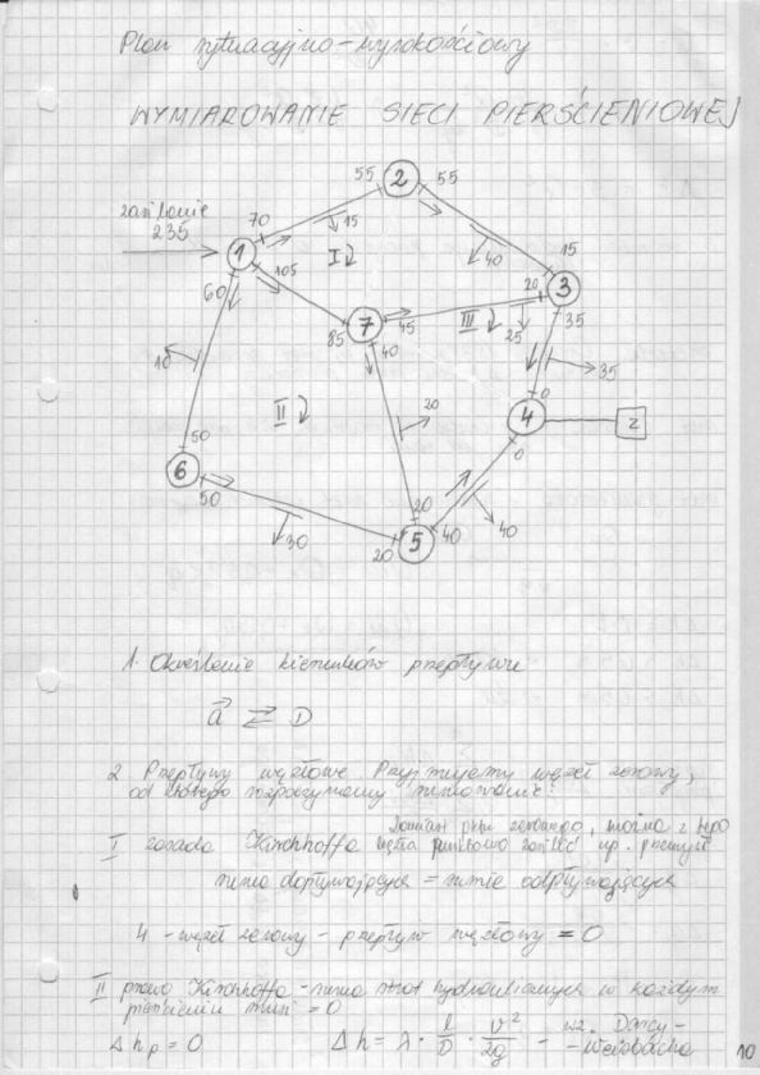 Plan sytuacyjno-wysokościowy
WYMIAROWANIE SIECI PIERŚCIENIOWEJ
55 2 55
zasilanie
235
70
15
1
I
105
40
15
60
20 3
7
85 45
III
25
35
40
10
35
II
20
0
4
z
50
0
6
50
20
30
20 5 40
40
1. Określenie kierunków przepływu
a ⇄ D
2 Przepływy węzłowe. Przyjmujemy węzeł zerowy,
od którego rozpoczynamy
Zamiast pktu zerowego, można z tego
I zasada Kirchhoffa węzła punktowo zasilać np. przemysł
suma dopływających = sumie odpływających
4 - węzeł zerowy - przepływ węzłowy = 0
II prawo Kirchhoffa - suma strat hydraulicznych w każdym
pierścieniu musi = 0
Δ hp = 0 Δ h = λ · l/D · v²/2g - wz. Darcy-
-Weisbacha
10